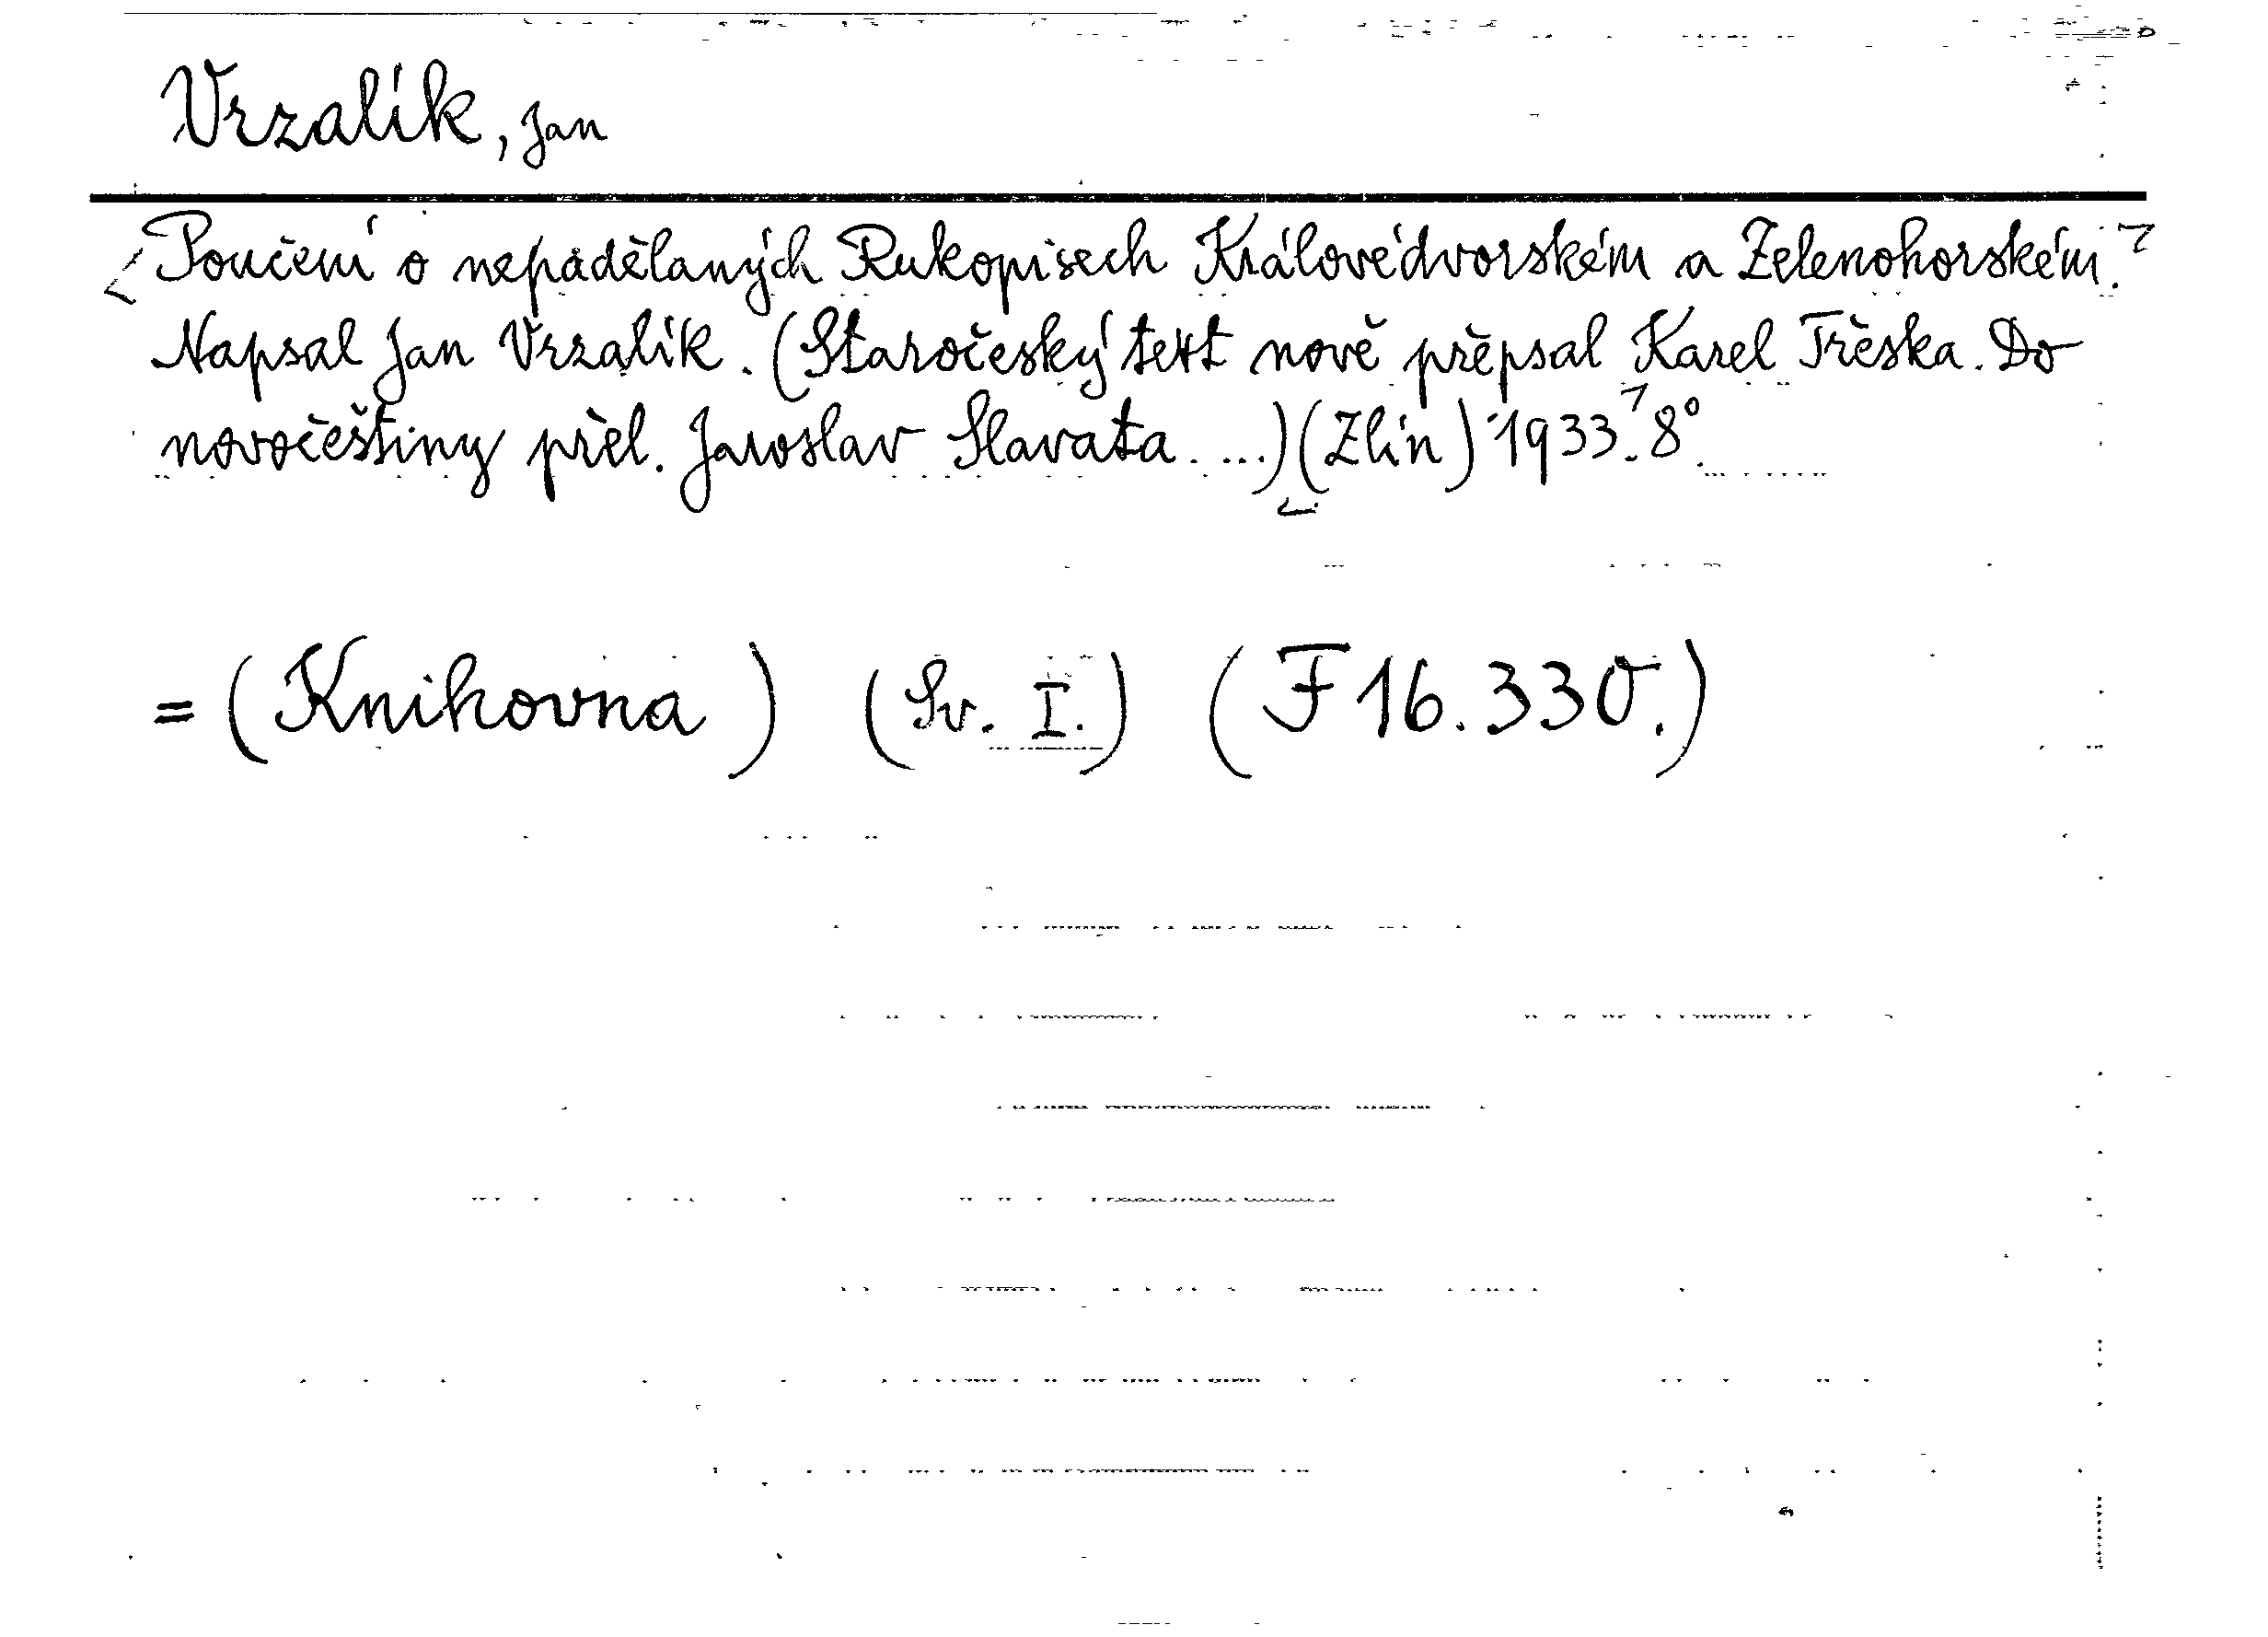 Vrzalík, Jan
Poučení o nepadělaných Rukopisech Královédvorském a Zelenohorském.
Napsal Jan Vrzalík. (Staročeský text nově přepsal Karel Třeska. Do
novočeštiny přel. Jaroslav Slavata. ...) (Zlín) 1933. 8°.
= (Knihovna) (Sv. I.) (F 16.330.)